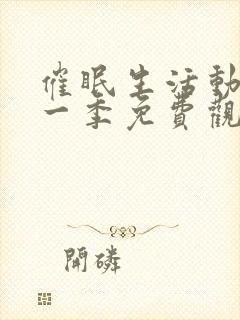 催眠生活動
一季免費觀
開磷